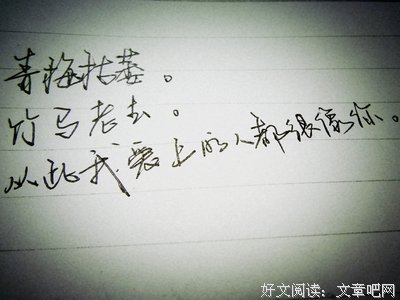 青梅枯萎。
竹马老去。
从此我爱上的人都很像你。
好文阅读：文章吧网